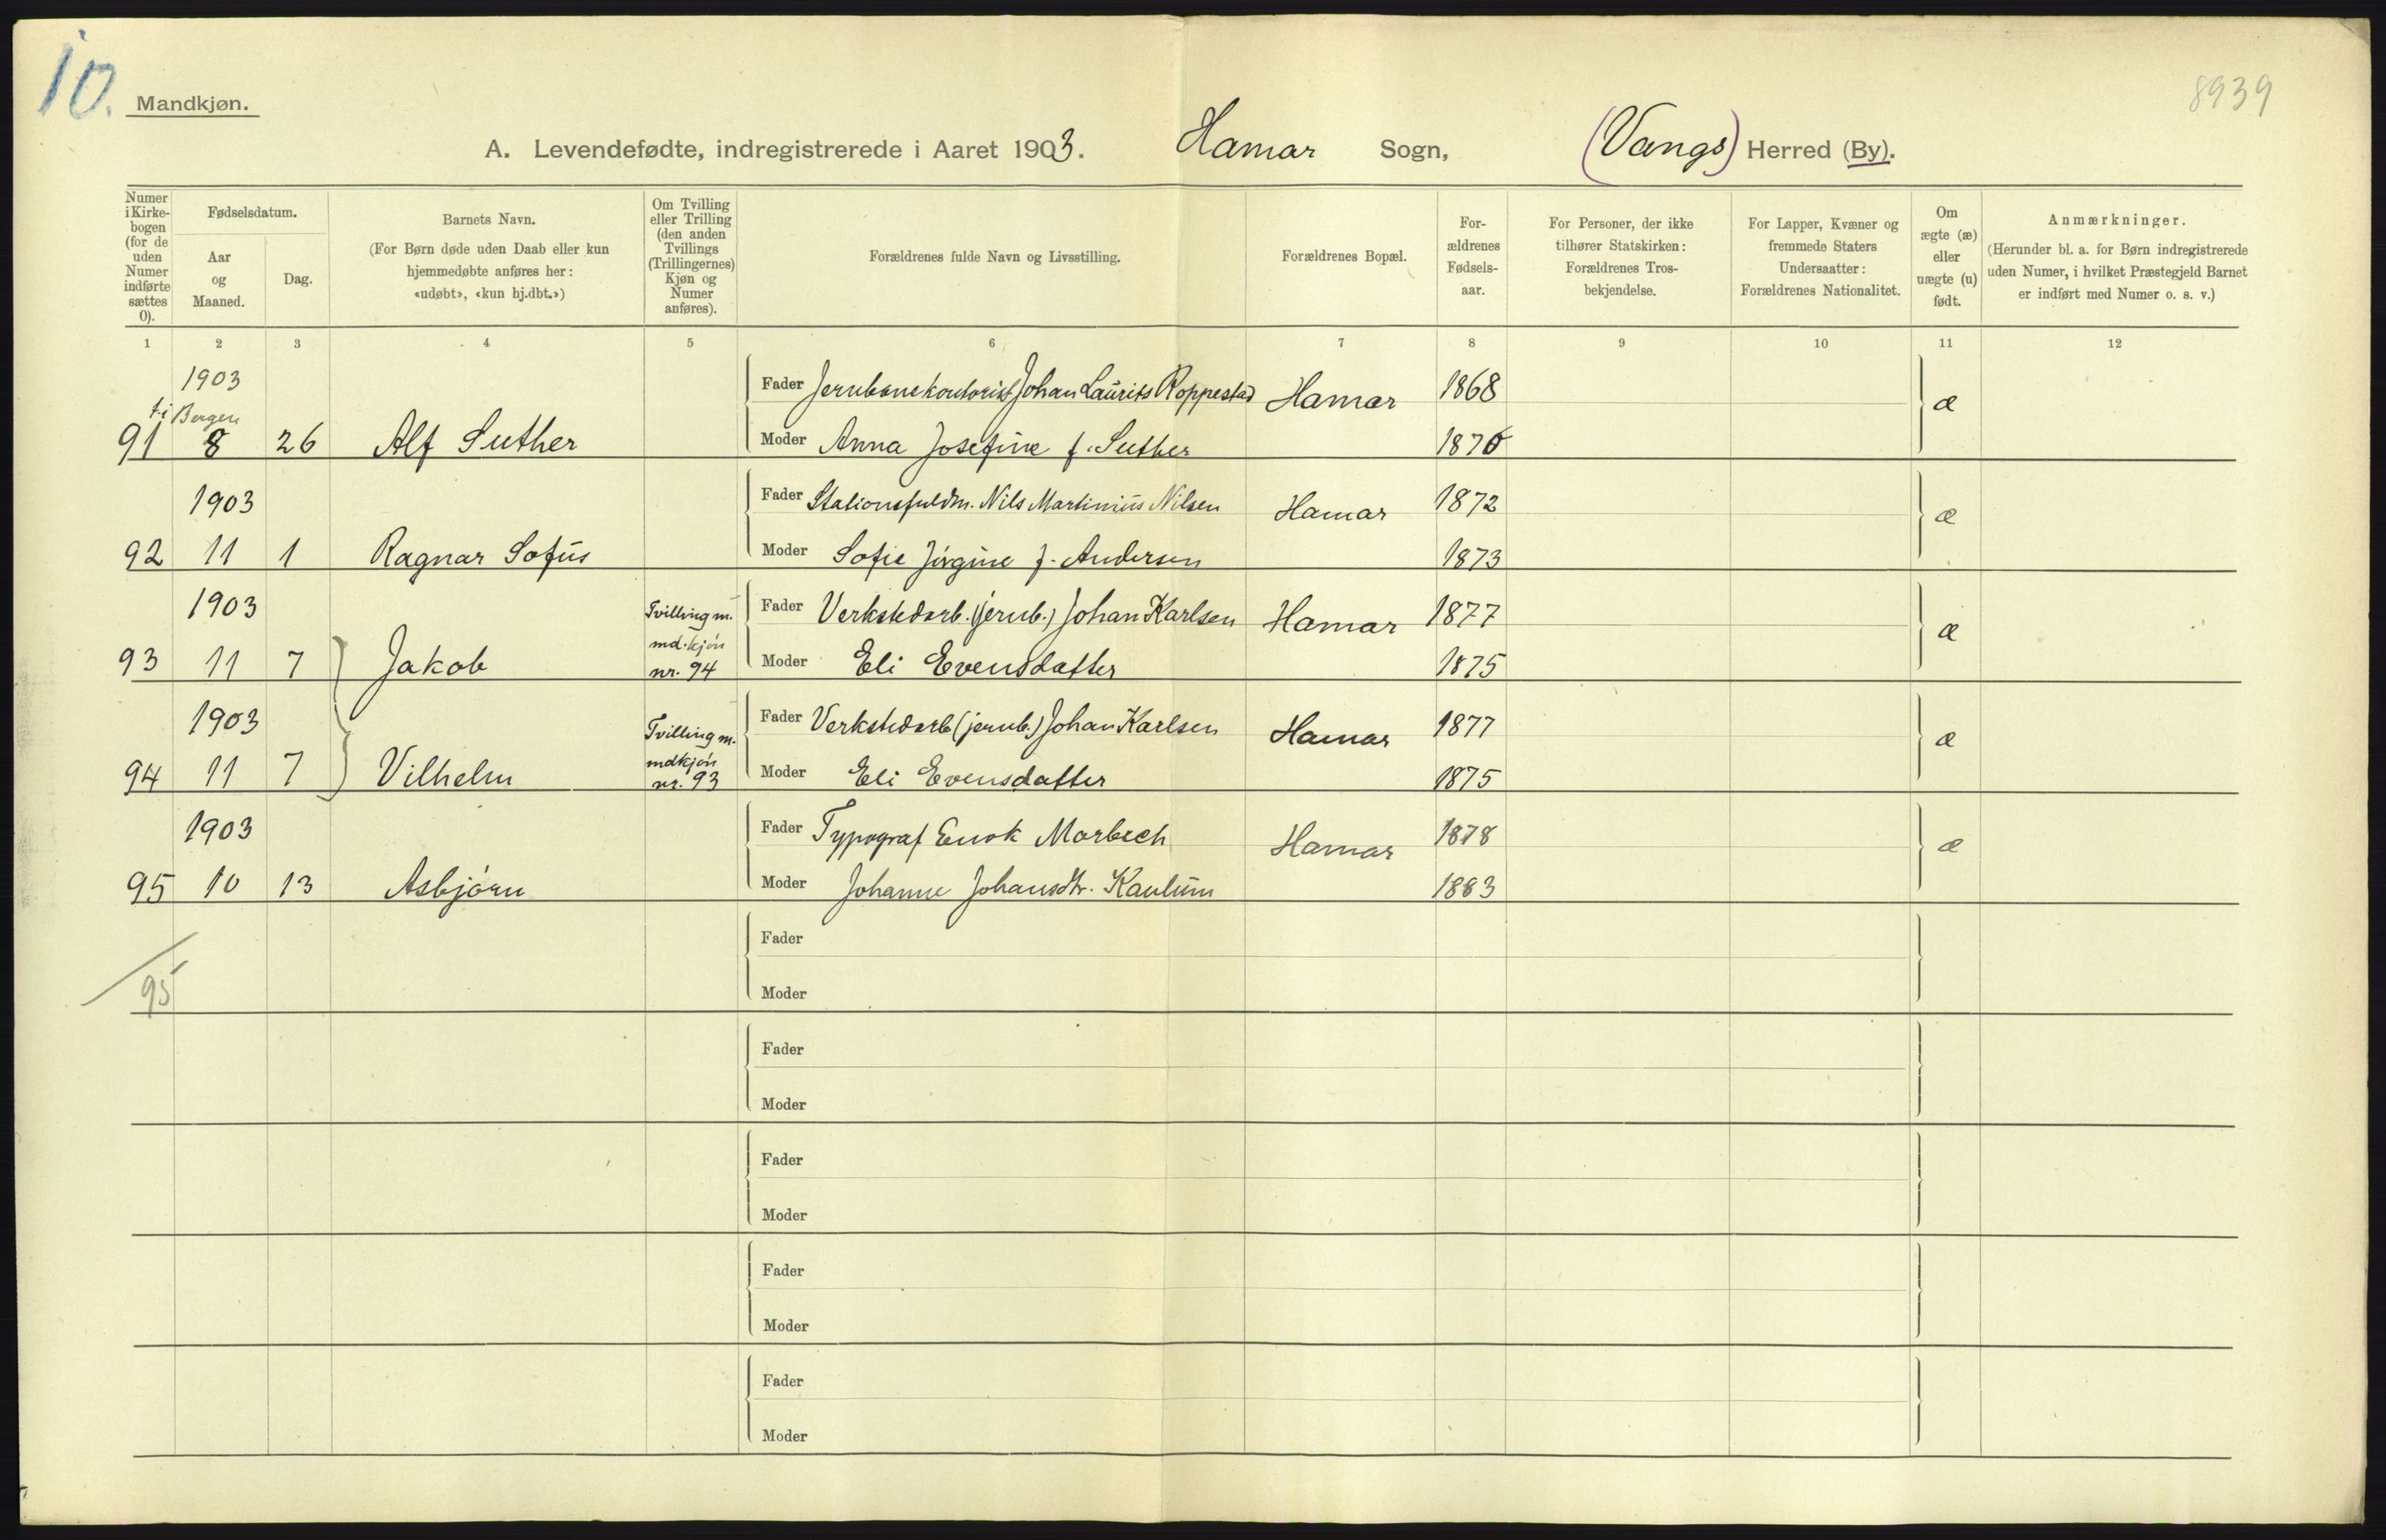 10.
Mandkjøn.
8939
A. Levendefødte, indregistrerede i Aaret 1903. Hamar Sogn, (Vangs) Herred (By).
Numer i Kirke-bogen (for de uden Numer indførte sættes 0).
Fødselsdatum.
Aar og Maaned.
Dag.
Barnets Navn.
(For Børn døde uden Daab eller kun hjemmedøbte anføres her: «udøbt», «kun hj.dbt.»)
Om Tvilling eller Trilling (den anden Tvillings (Trillingernes) Kjøn og Numer anføres).
Forældrenes fulde Navn og Livsstilling.
Forældrenes Bopæl.
For-ældrenes Fødsels-aar.
For Personer, der ikke tilhører Statskirken: Forældrenes Tros-bekjendelse.
For Lapper, Kvæner og fremmede Staters Undersaatter: Forældrenes Nationalitet.
Om ægte (æ) eller uægte (u) født.
Anmærkninger.
(Herunder bl. a. for Børn indregistrerede uden Numer, i hvilket Præstegjeld Barnet er indført med Numer o. s. v.)
1 2 3 4 5 6 7 8 9 10 11 12
1903 Fader Jernbanekontorist Johan Laurits Roppestad Hamar 1868 æ
f. i Bergen
91 8 26 Alf Suther Moder Anna Josefine f. Suther 1870
1903 Fader Stationsfuldm. Nils Martinius Nilsen Hamar 1872 æ
92 11 1 Ragnar Sofus Moder Sofie Jørgine f. Andersen 1873
1903 Tvilling m. Fader Verkstedarb. (jernb.) Johan Karlsen Hamar 1877 æ
md.kjøn
93 11 7 Jakob nr. 94 Moder Eli Evensdatter 1875
1903 Tvilling m. Fader Verkstedarb (jernb.) Johan Karlsen Hamar 1877 æ
mdkjøn
94 11 7 Vilhelm nr. 93 Moder Eli Evensdatter 1875
1903 Fader Typograf Enok Morbech Hamar 1878 æ
95 10 13 Asbjørn Moder Johanne Johansdtr. Kaulum 1883
Fader
95
Moder
Fader
Moder
Fader
Moder
Fader
Moder
Fader
Moder